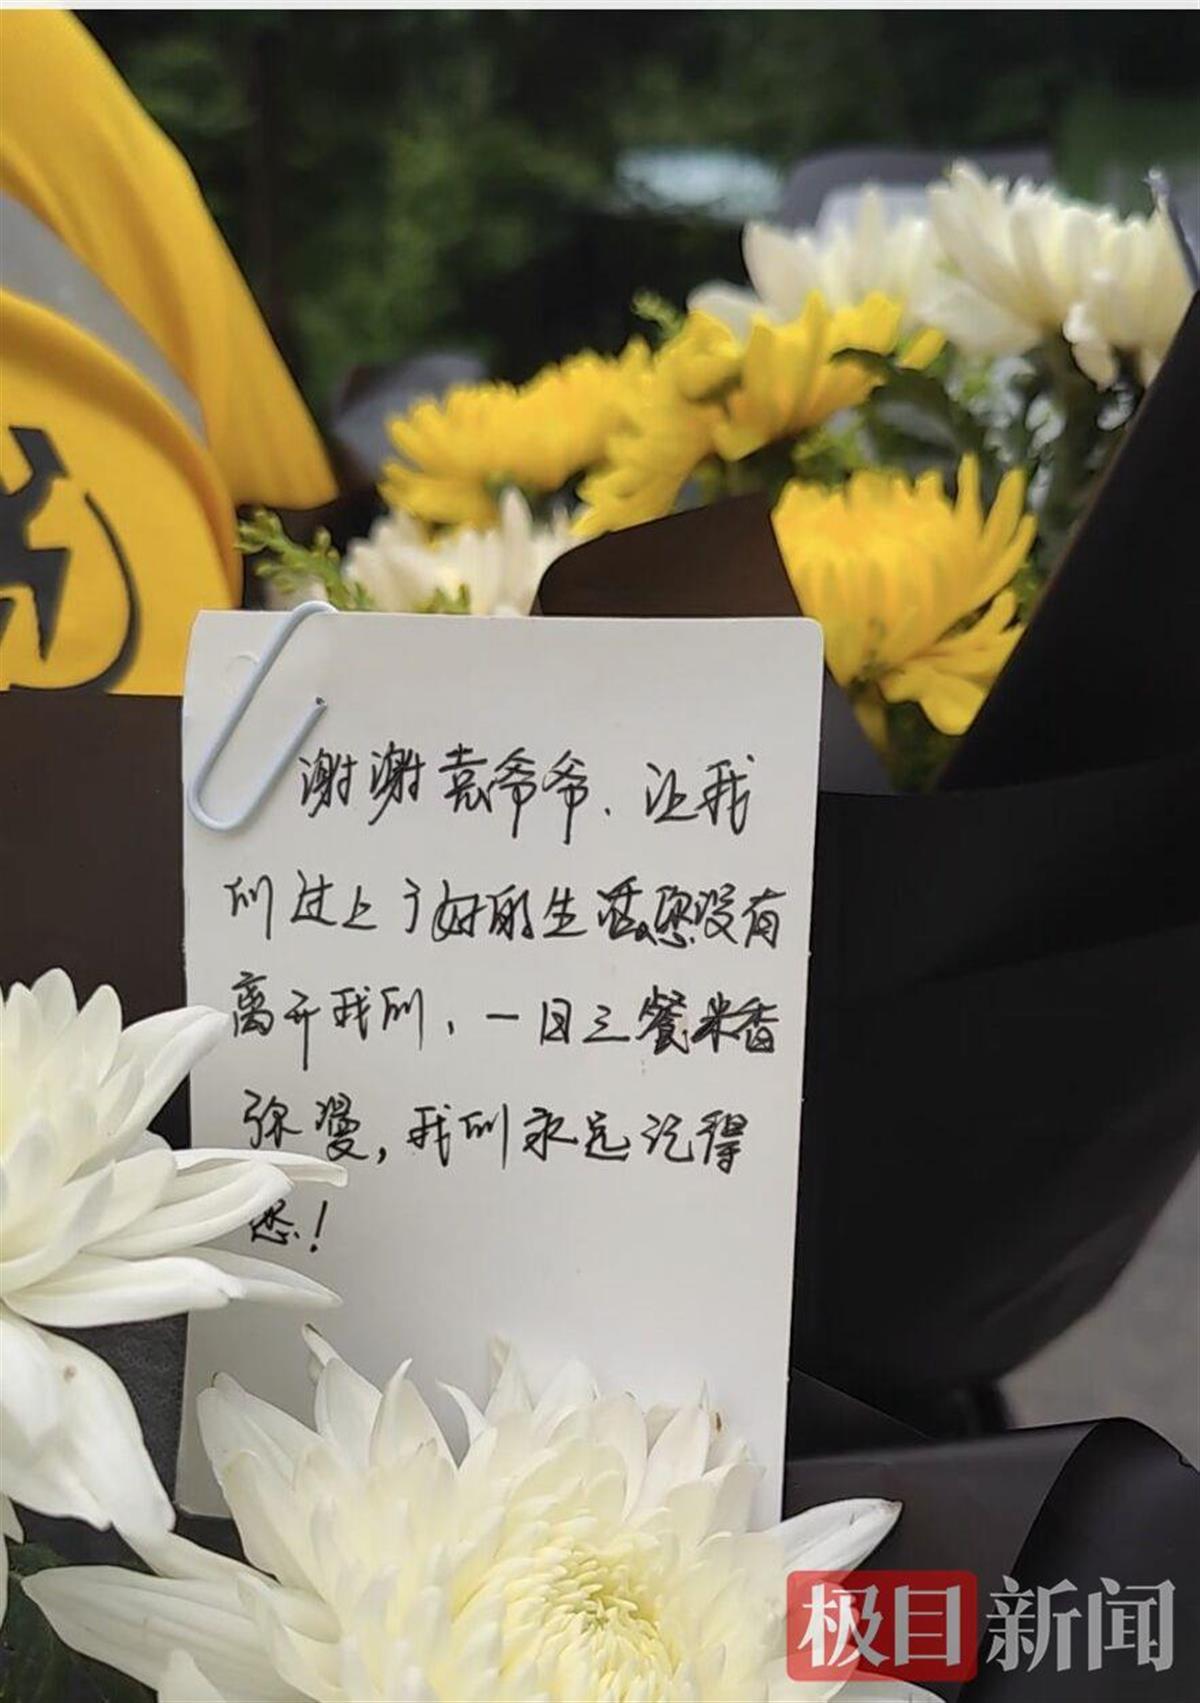 谢谢袁爷爷、让我
们过上了好的生活。您没有
离开我们、一日三餐米香
弥漫，我们永远记得
您！
极目新闻